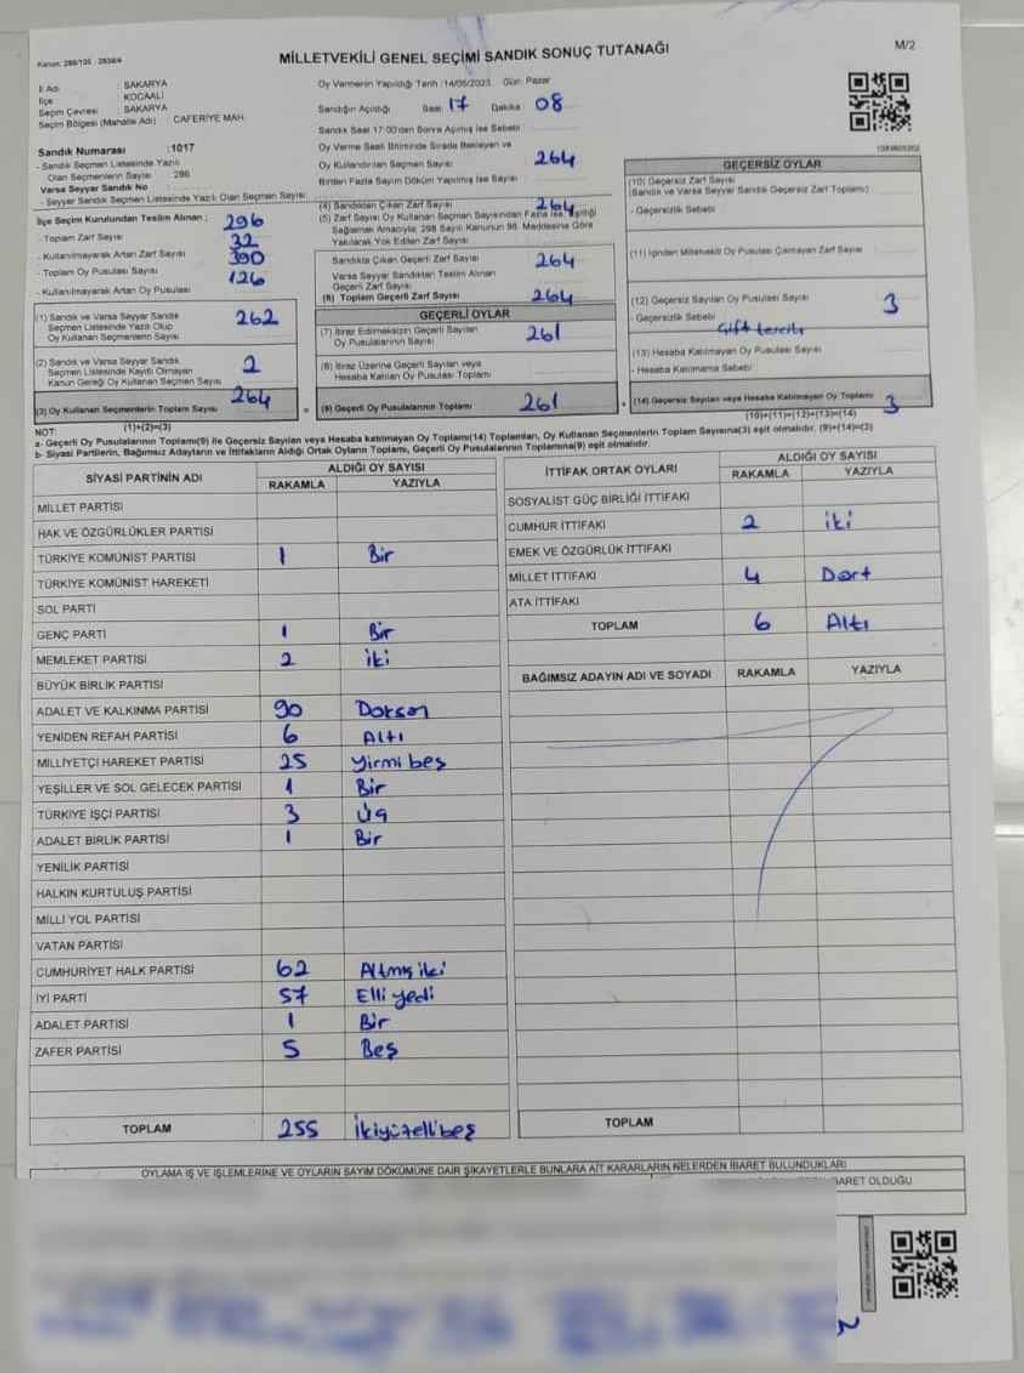 MİLLETVEKİLİ GENEL SEÇİMİ SANDIK SONUÇ TUTANAĞI
M/2
İl Adı : SAKARYA
İlçe : KOCAALİ
Seçim Çevresi : SAKARYA
Seçim Bölgesi (Mahalle Adı) : CAFERİYE MAH.
Sandık Numarası :1017
- Sandık Seçmen Listesinde Yazılı
Olan Seçmenlerin Sayısı : 286
Varsa Seyyar Sandık No :
- Seyyar Sandık Seçmen Listesinde Yazılı Olan Seçmen Sayısı
İlçe Seçim Kurulundan Teslim Alınan ;
- Toplam Zarf Sayısı 296
- Kullanılmayarak Artan Zarf Sayısı 32
- Toplam Oy Pusulası Sayısı 390
- Kullanılmayarak Artan Oy Pusulası 126
(1) Sandık ve Varsa Seyyar Sandık
Seçmen Listesinde Yazılı Olup
Oy Kullanan Seçmenlerin Sayısı 262
(2) Sandık ve Varsa Seyyar Sandık
Seçmen Listesinde Kayıtlı Olmayan
Kanun Gereği Oy Kullanan Seçmen Sayısı 2
(3) Oy Kullanan Seçmenlerin Toplam Sayısı 264
(1)+(2)=(3)
Oy Vermenin Yapıldığı Tarih :14/05/2023 Gün: Pazar
Sandığın Açıldığı Saat 17 Dakika 08
Sandık Saat 17:00'den Sonra Açılmış İse Sebebi
Oy Verme Saati Bitiminde Sırada Bekleyen ve
Oy Kullandırılan Seçmen Sayısı 264
Birden Fazla Sayım Döküm Yapılmış İse Sayısı
(4) Sandıktan Çıkan Zarf Sayısı 264
(5) Zarf Sayısı Oy Kullanan Seçmen Sayısından Fazla İse, Eşitliği
Sağlamak Amacıyla; 298 Sayılı Kanunun 98. Maddesine Göre
Yakılarak Yok Edilen Zarf Sayısı
Sandıkta Çıkan Geçerli Zarf Sayısı 264
Varsa Seyyar Sandıktan Teslim Alınan
Geçerli Zarf Sayısı
(6) Toplam Geçerli Zarf Sayısı 264
GEÇERLİ OYLAR
(7) İtiraz Edilmeksizin Geçerli Sayılan
Oy Pusulalarının Sayısı 261
(8) İtiraz Üzerine Geçerli Sayılan veya
Hesaba Katılan Oy Pusulası Toplamı
= (9) Geçerli Oy Pusulalarının Toplamı 261
GEÇERSİZ OYLAR
(10) Geçersiz Zarf Sayısı
(Sandık ve Varsa Seyyar Sandık Geçersiz Zarf Toplamı)
- Geçersizlik Sebebi
(11) İçinden Milletvekili Oy Pusulası Çıkmayan Zarf Sayısı
(12) Geçersiz Sayılan Oy Pusulası Sayısı 3
- Geçersizlik Sebebi
Çift tercih
(13) Hesaba Katılmayan Oy Pusulası Sayısı
- Hesaba Katılmama Sebebi
+ (14) Geçersiz Sayılan veya Hesaba Katılmayan Oy Toplamı 3
(10)+(11)+(12)+(13)=(14)
NOT:
a- Geçerli Oy Pusulalarının Toplamı(9) ile Geçersiz Sayılan veya Hesaba katılmayan Oy Toplamı(14) Toplamları, Oy Kullanan Seçmenlerin Toplam Sayısına(3) eşit olmalıdır. (9)+(14)=(3)
b- Siyasi Partilerin, Bağımsız Adayların ve İttifakların Aldığı Ortak Oyların Toplamı, Geçerli Oy Pusulalarının Toplamına(9) eşit olmalıdır.
SİYASİ PARTİNİN ADI ALDIĞI OY SAYISI
RAKAMLA YAZIYLA
MİLLET PARTİSİ
HAK VE ÖZGÜRLÜKLER PARTİSİ
TÜRKİYE KOMÜNİST PARTİSİ 1 Bir
TÜRKİYE KOMÜNİST HAREKETİ
SOL PARTİ
GENÇ PARTİ 1 Bir
MEMLEKET PARTİSİ 2 iki
BÜYÜK BİRLİK PARTİSİ
ADALET VE KALKINMA PARTİSİ 90 Doksan
YENİDEN REFAH PARTİSİ 6 Altı
MİLLİYETÇİ HAREKET PARTİSİ 25 Yirmi beş
YEŞİLLER VE SOL GELECEK PARTİSİ 1 Bir
TÜRKİYE İŞÇİ PARTİSİ 3 Üç
ADALET BİRLİK PARTİSİ 1 Bir
YENİLİK PARTİSİ
HALKIN KURTULUŞ PARTİSİ
MİLLİ YOL PARTİSİ
VATAN PARTİSİ
CUMHURİYET HALK PARTİSİ 62 Altmış iki
İYİ PARTİ 57 Elli yedi
ADALET PARTİSİ 1 Bir
ZAFER PARTİSİ 5 Beş
TOPLAM 255 İkiyüzellibeş
İTTİFAK ORTAK OYLARI ALDIĞI OY SAYISI
RAKAMLA YAZIYLA
SOSYALİST GÜÇ BİRLİĞİ İTTİFAKI
CUMHUR İTTİFAKI 2 iki
EMEK VE ÖZGÜRLÜK İTTİFAKI
MİLLET İTTİFAKI 4 Dört
ATA İTTİFAKI
TOPLAM 6 Altı
BAĞIMSIZ ADAYIN ADI VE SOYADI RAKAMLA YAZIYLA
TOPLAM
OYLAMA İŞ VE İŞLEMLERİNE VE OYLARIN SAYIM DÖKÜMÜNE DAİR ŞİKAYETLERLE BUNLARA AİT KARARLARIN NELERDEN İBARET BULUNDUKLARI
BARET OLDUĞU